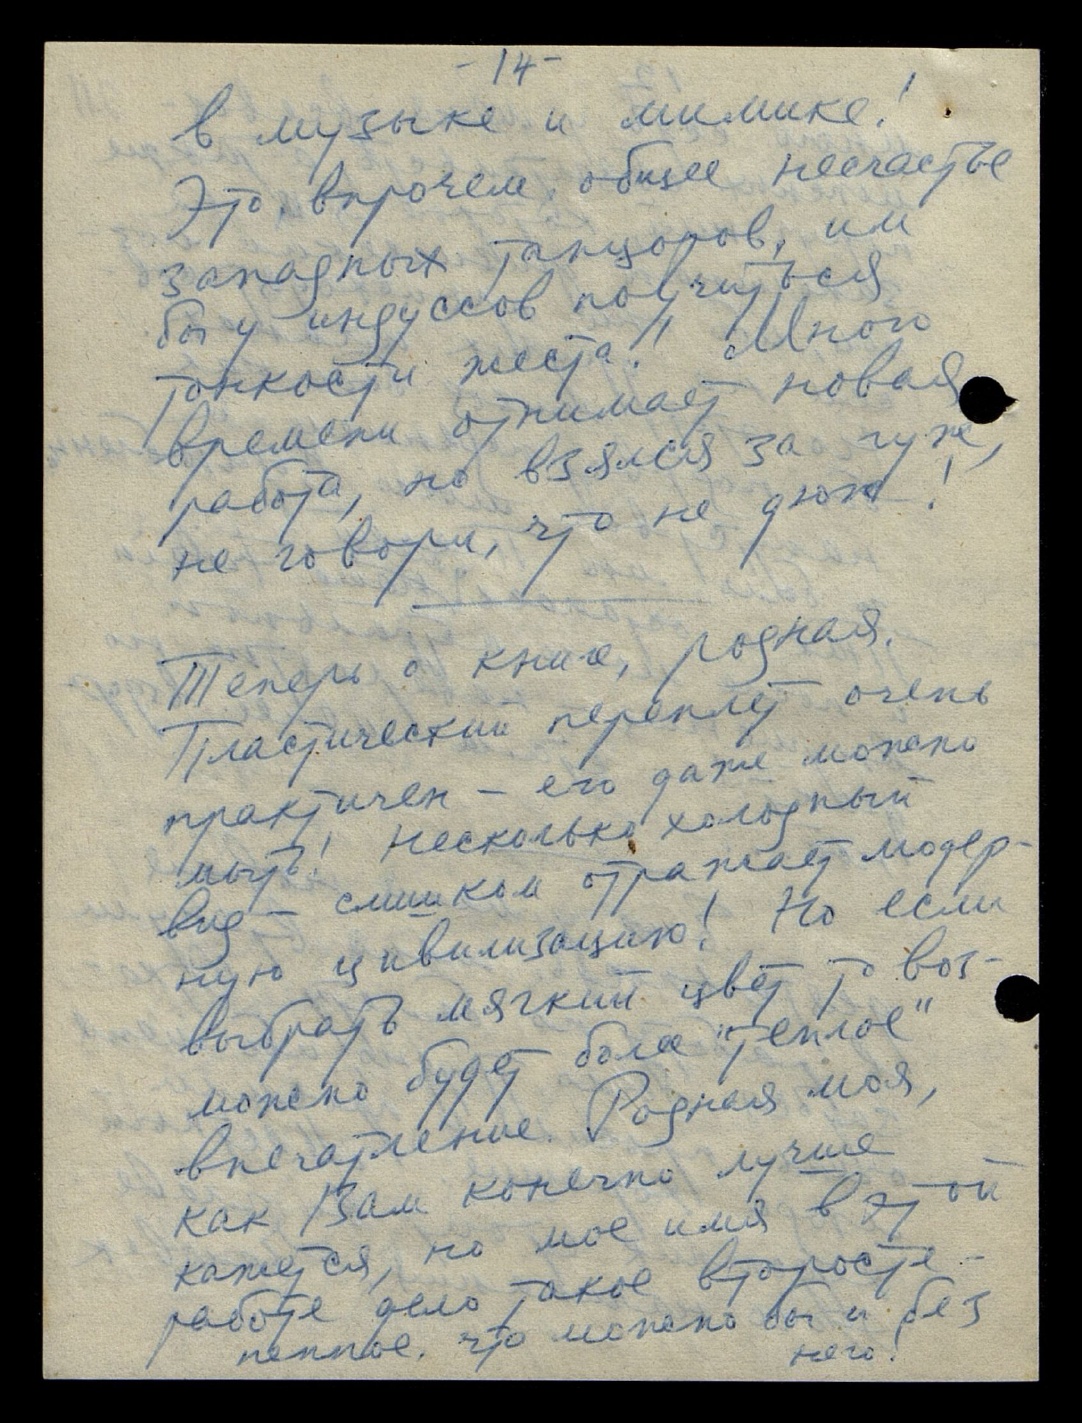 -14-
в музыке и мимике!
Это впрочем общее несчастье
западных танцоров, им
бы у индуссов поучиться
тонкости жеста! Много
времени отнимает новая
работа, но взялся за гуж,
не говори, что не дюж!
Теперь о книге, родная.
Пластический переплет очень
практичен – его даже можно
мыть! Несколько холодный
вид – слишком отражает модер-
ную цивилизацию! Но если
выбрать мягкий цвет то воз-
можно будет более "теплое"
впечатление. Родная моя,
как Вам конечно лучше
кажется, но мое имя в этой
работе дело такое второсте-
пенное, что можно бы и без
него!